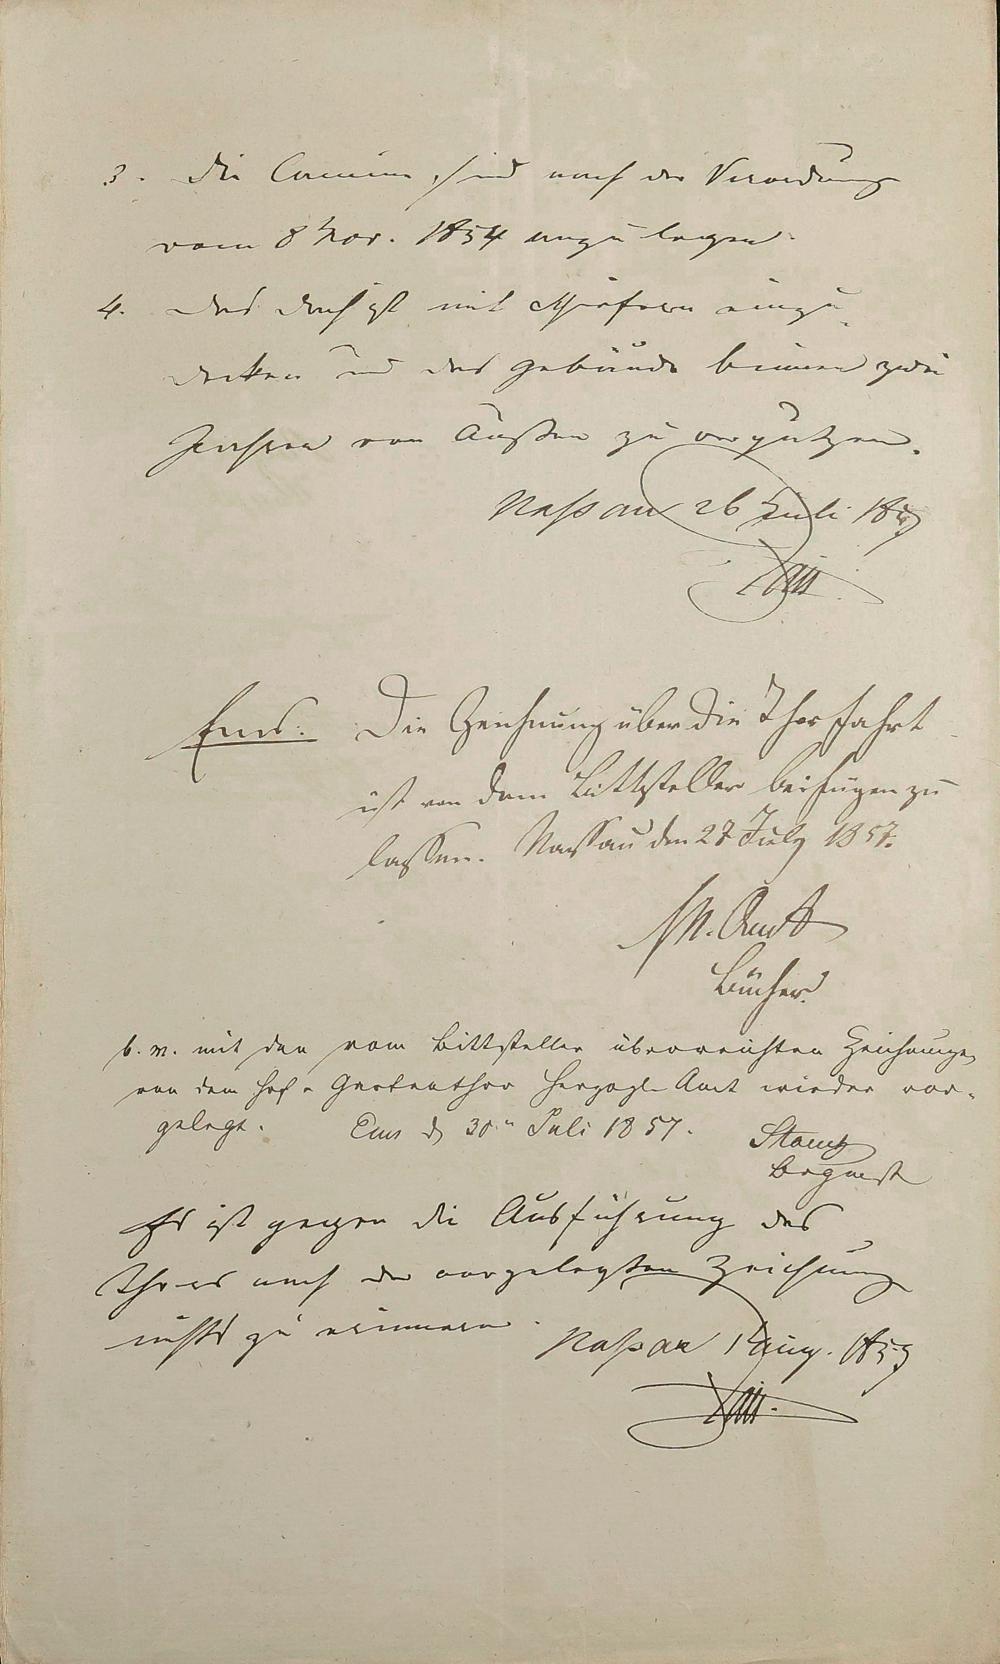 3. Die Camine sind nach der Verordnung
vom 8 Nov. 1854 anzulegen.
4. Das Dach ist mit Schiefern einzu-
decken und das Gebäude binnen zwei
Jahren von Außen zu verputzen.
Nassau 26 Juli 1857
Ems. Die Zeichnung über die Thorfahrt
ist von dem Bittsteller beifügen zu
lassen. Nassau den 27 July 1857.
H. N. Amt
Bücher.
b. m. mit den vom Bittsteller überreichten Zeichnungen
von dem Hof- Gartenthor Herzogl. Amt wieder vor-
gelegt. Ems d. 30n Juli 1857.
Es ist gegen die Ausführung des
Thores nach der vorgelegten Zeichnung
nichts zu erinnern.
Nassau 1 Aug. 1857